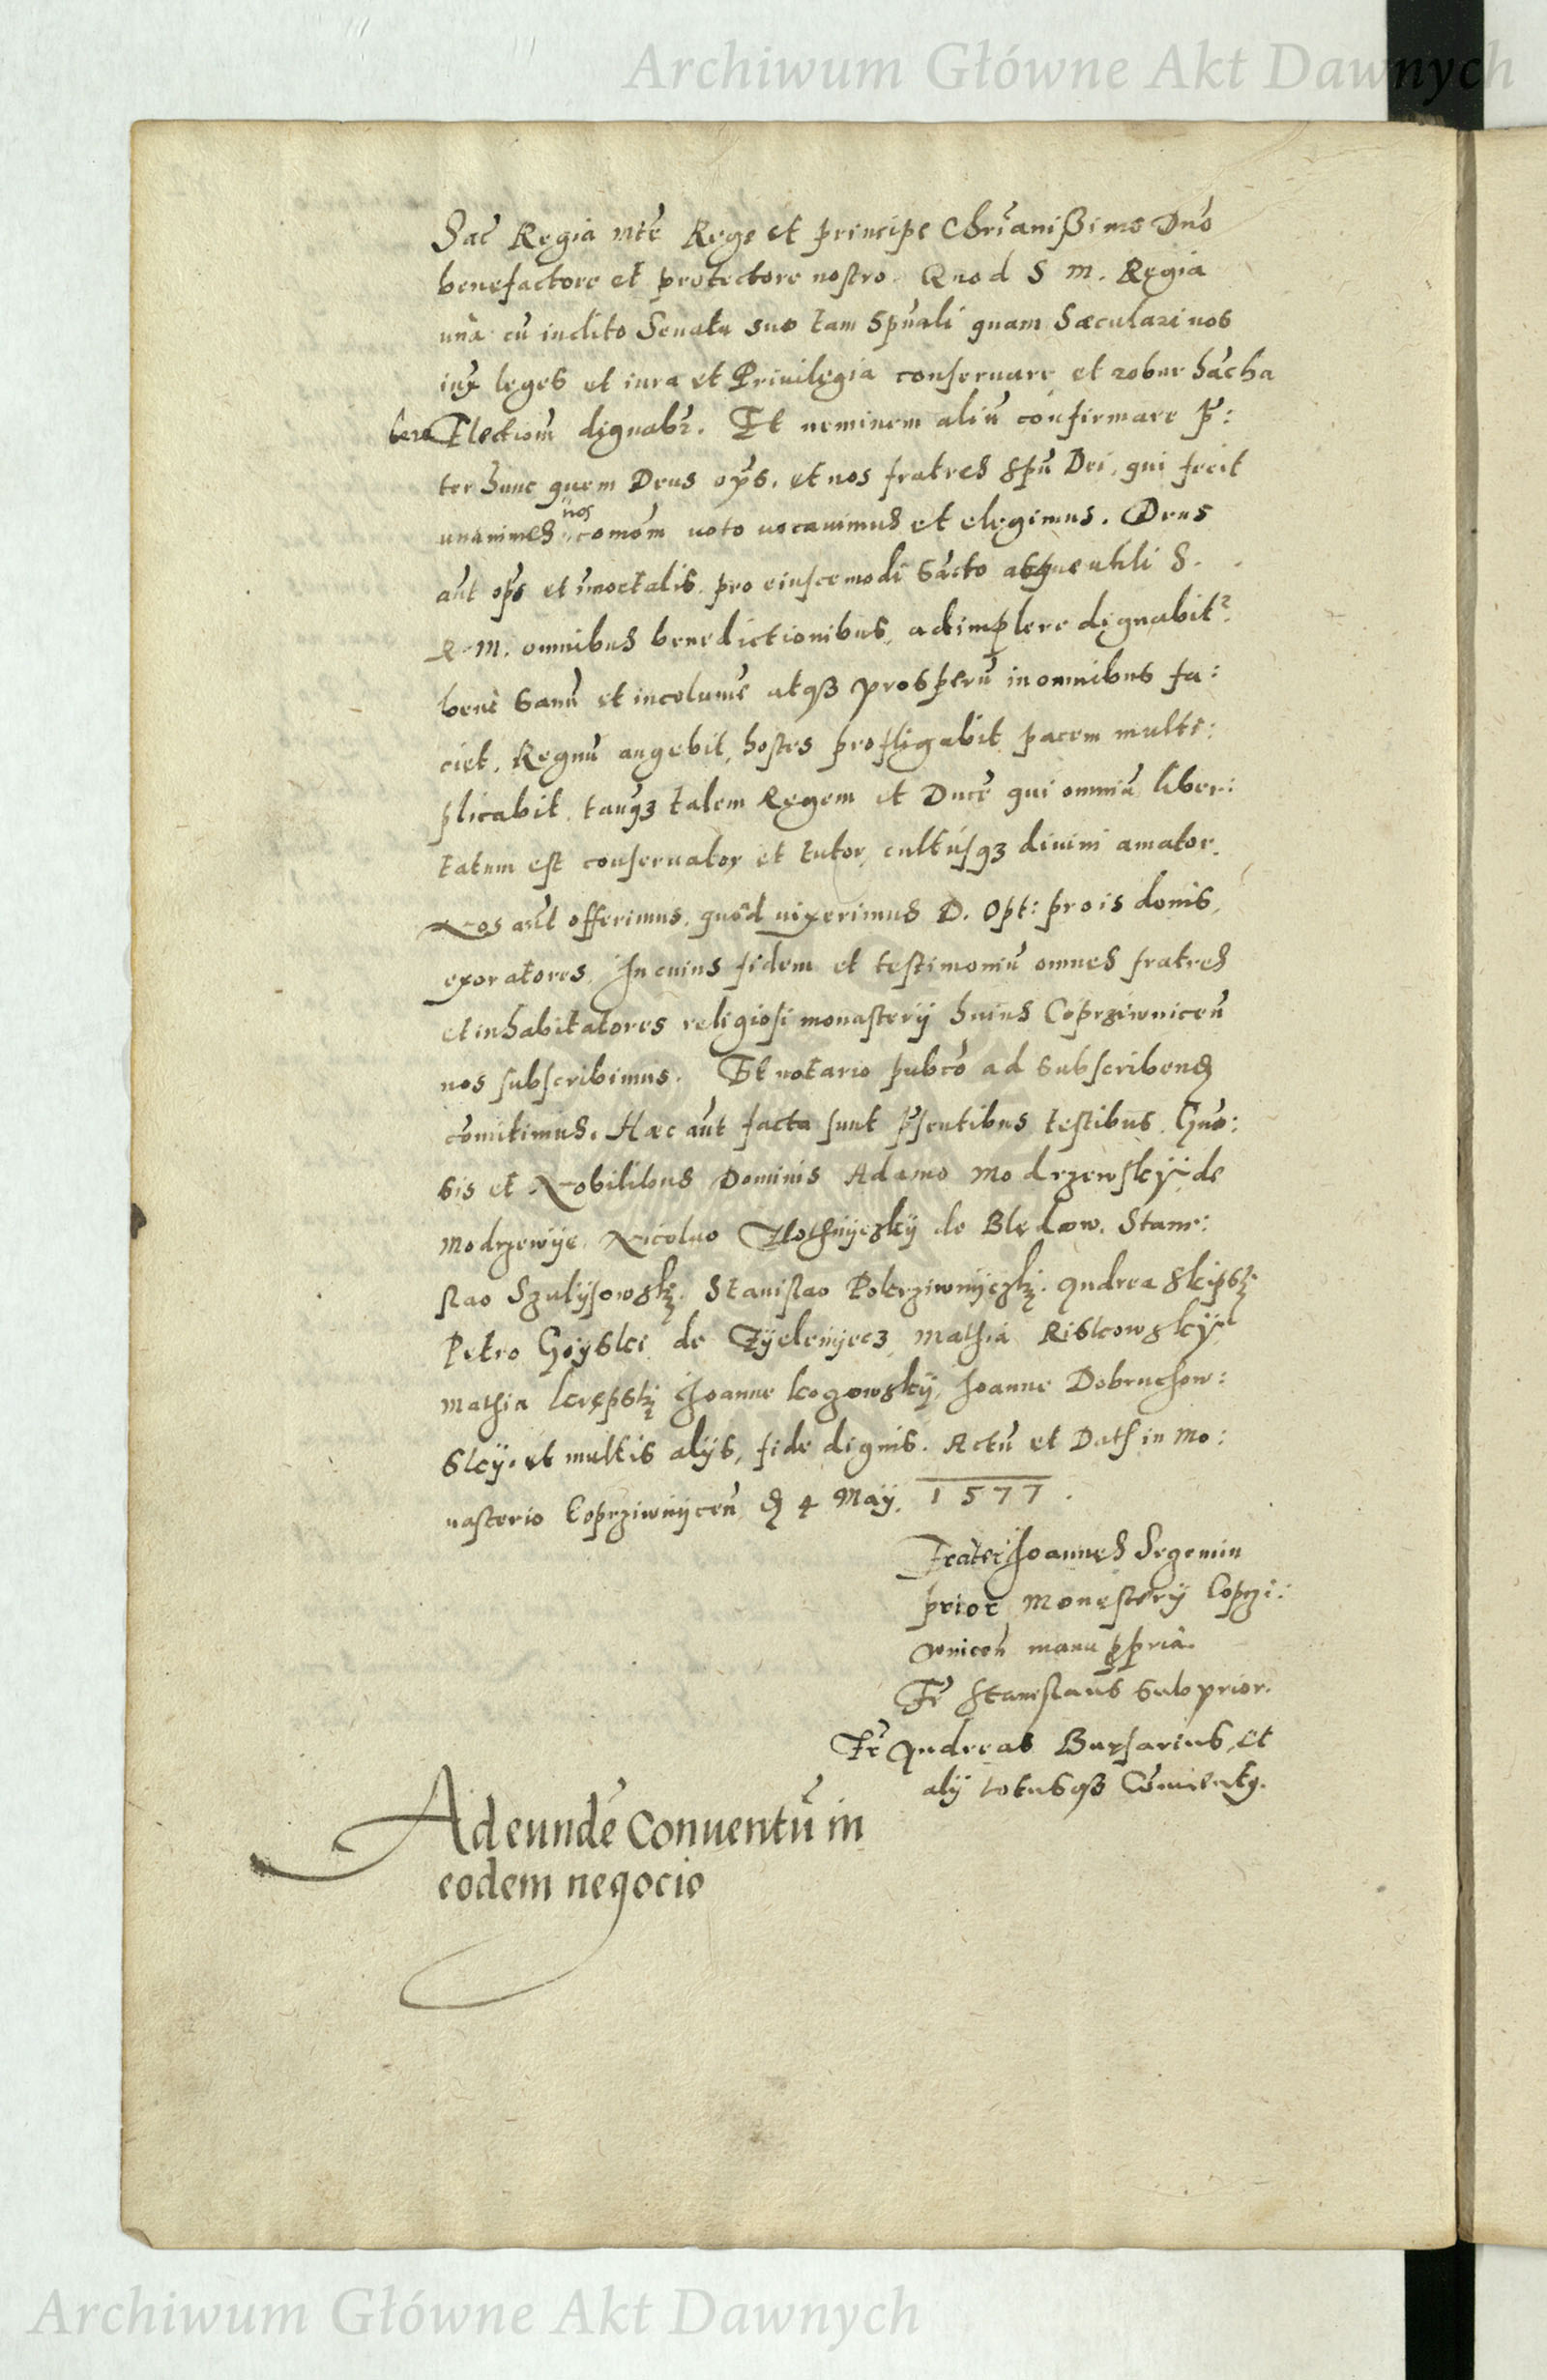 Archiwum Główne Akt Dawnych
Sac̃ Regia Mtẽ Rege et principe Chrĩanißimo Dnõ
benefactore et protectore nostro. Quod S M. Regia
unà cũ inclito Senatu suo tam Spũali quam Sæculari nos
iux leges et iura et Privilegia conservare et robur hãc ha
bere Electionẽ dignabr. Et neminem aliũ confirmare p̃:
ter hunc quem Deus op̃s. et nos fratres Spũ Dei, qui fecit
unanimes nos comõm voto vocavimus et elegimus. Deus
aũt op̃s et ĩmortalis pro eiuscemodi Sãcto atque utili S.
R. M. omnibus benedictionibus adimplere dignabit2
benè Sanũ et incolumẽ atq3 prosperũ in omnibus fa:
ciet. Regnũ augebit, hostes profligabit pacem multi:
plicabit tanq3 talem Regem et Ducẽ qui omniũ liber:
tatum est conservator et tutor, cultusq3 divini amator.
Nos aũt offerimus quòd vixerimus D. Opt: pro is donis
exoratores. In cuius fidem et testimoniũ omnes fratres
et inhabitatores religiosi monasterij huius Coprziwniceñ
nos subscribimus. Et notario pubcõ ad subscribend
cõmitimus. Hæc aũt facta sunt p̃sentibus testibus. Gño:
sis et Nobilibus Dominis Adamo Modrzewskÿ de
Modrzewÿe Nicolao Zlothnÿczkÿ de Bledow. Stani:
slao Szulÿsowskj. Stanislao Pokrziwnÿczkj. Andrea Skipskj
Petro Goÿski de Zÿelenÿecz Mathia Riskowskÿ
Mathia krępskj Joanne kozowskÿ, Joanne Dobruchow:
skÿ. et multis alÿs, fide dignis. Actũ et Dath in Mo:
nasterio Coprziwnÿceñ d 4 Maÿ. 1577.
Frater Joannes Segemin
prior Monesterÿ Coprzi:
wniceñ manu ppriâ.
Fr̃ Stanislaus Subprior.
Fr̃ Andreas Bursarius, et
alÿ totusq3 Cõnventq.
Ad eundẽ Conventũ in
eodem negocio
Archiwum Główne Akt Dawnych